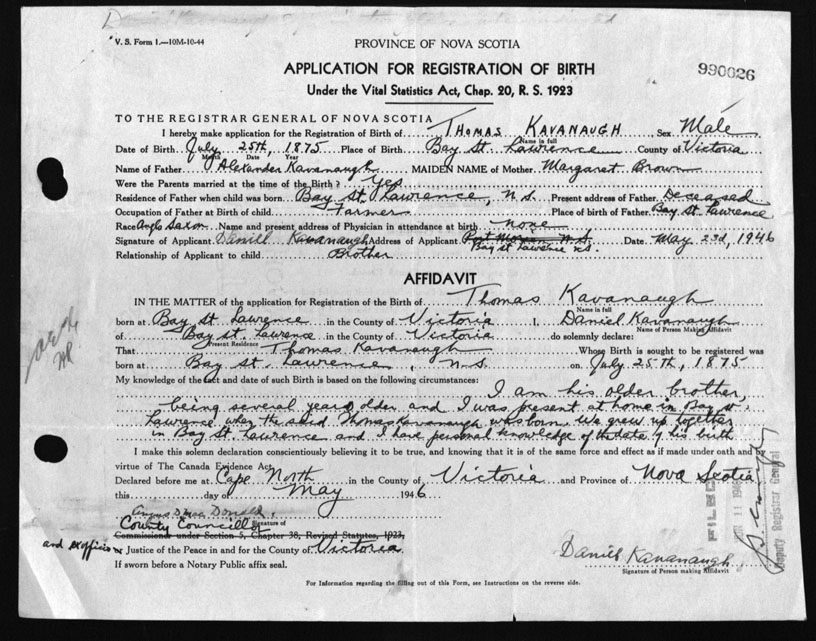 V. S. Form 1.—10M-10-44
PROVINCE OF NOVA SCOTIA
990026
APPLICATION FOR REGISTRATION OF BIRTH
Under the Vital Statistics Act, Chap. 20, R. S. 1923
TO THE REGISTRAR GENERAL OF NOVA SCOTIA
I hereby make application for the Registration of Birth of THOMAS KAVANAUGH Sex Male
Name in full
Date of Birth July 25th, 1875 Place of Birth Bay St. Lawrence County of Victoria
Month Date Year
Name of Father Alexander Kavanaugh MAIDEN NAME of Mother Margaret Brown
Were the Parents married at the time of the Birth? Yes
Residence of Father when child was born Bay St. Lawrence, N.S. Present address of Father Deceased
Occupation of Father at Birth of child Farmer Place of birth of Father Bay St. Lawrence
Race Anglo Saxon Name and present address of Physician in attendance at birth none
Signature of Applicant Daniel Kavanaugh Address of Applicant Bay St Lawrence N.S. Date May 23d, 1946
Relationship of Applicant to child Brother
AFFIDAVIT
IN THE MATTER of the application for Registration of the Birth of Thomas Kavanaugh
Name in full
born at Bay St. Lawrence in the County of Victoria I, Daniel Kavanaugh
Name of Person Making Affidavit
of Bay St. Lawrence in the County of Victoria do solemnly declare:
Present Residence
That Thomas Kavanaugh Whose Birth is sought to be registered was
born at Bay St. Lawrence, N.S. on July 25th, 1875
My knowledge of the fact and date of such Birth is based on the following circumstances:
I am his older brother,
being several years older and I was present at home in Bay St.
Lawrence when the said Thomas Kavanaugh was born. We grew up together
in Bay St. Lawrence and I have personal knowledge of the date of his birth
I make this solemn declaration conscientiously believing it to be true, and knowing that it is of the same force and effect as if made under oath and by
virtue of The Canada Evidence Act.
Declared before me at Cape North in the County of Victoria and Province of Nova Scotia
this day of May 1946
Angus D MacDonald.
County Councillor
Signature of
Commissioner under Section 5, Chapter 38, Revised Statutes, 1923,
and exofficio or Justice of the Peace in and for the County of Victoria
If sworn before a Notary Public affix seal.
Daniel Kavanaugh
Signature of Person making Affidavit
FILED
11 1946
Deputy Registrar General
For Information regarding the filling out of this Form, see Instructions on the reverse side.